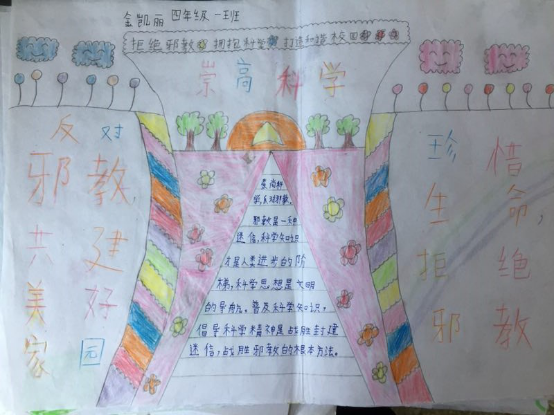 金凯丽 四年级 一班
拒绝邪教 拥抱科学 打造和谐校园
崇高科学
反对
邪教,
共建
美好
家园
珍惜
生命,
拒绝
邪教
邪教是一种
迷信,科学知识
才是人类进步的阶
梯,科学思想是文明
的导航。普及科学知识。
倡导科学精神是战胜封建
迷信,战胜邪教的根本方法。